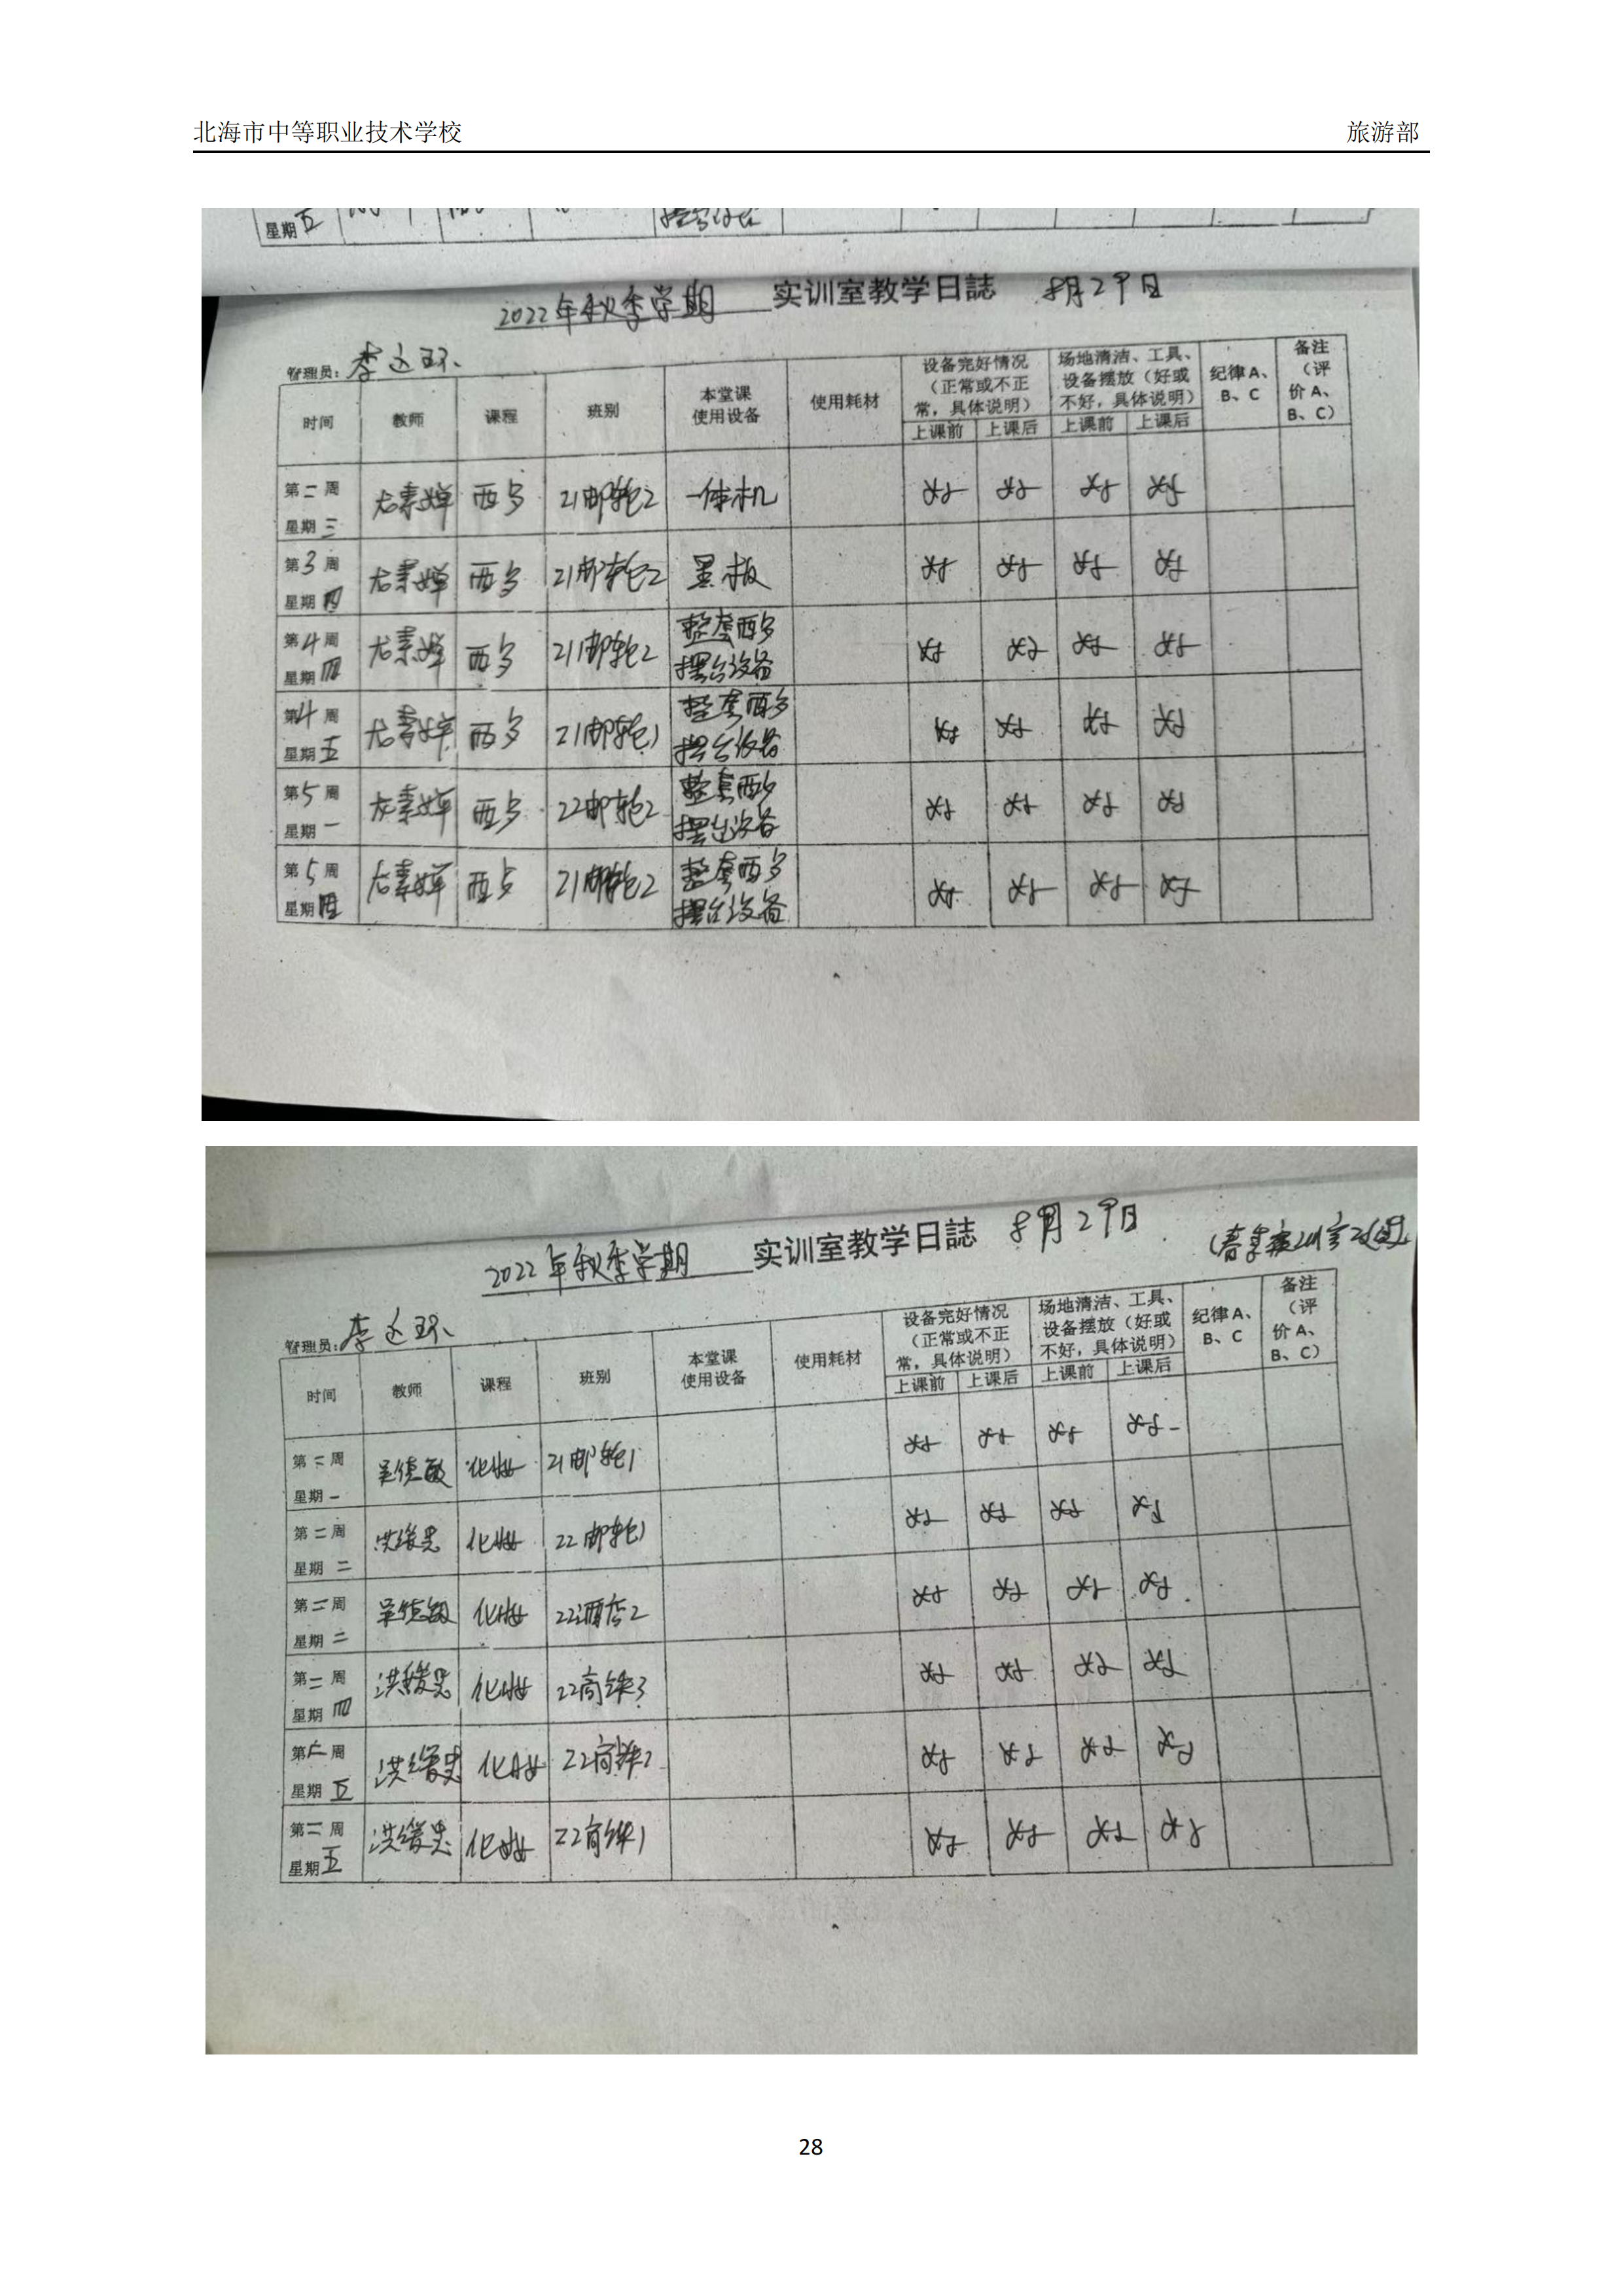 北海市中等职业技术学校 旅游部
星期五
2022年秋季学期 实训室教学日誌 8月29日
管理员：李
时间 教师 课程 班别 本堂课使用设备 使用耗材 设备完好情况（正常或不正常，具体说明） 场地清洁、工具、设备摆放（好或不好，具体说明） 纪律A、B、C 备注（评价A、B、C）
上课前 上课后 上课前 上课后
第二周 星期三 西 21邮轮2 一体机 好 好 好 好
第3周 星期四 西 21邮轮2 黑板 好 好 好 好
第4周 星期四 西 21邮轮2 整套西 摆台设备 好 好 好 好
第4周 星期五 西 21邮轮1 整套西 摆台设备 好 好 好 好
第5周 星期一 西 22邮轮2 整套西 摆台设备 好 好 好 好
第5周 星期四 西 21邮轮2 整套西 摆台设备 好 好 好 好
2022年秋季学期 实训室教学日誌 8月29日
管理员：李
时间 教师 课程 班别 本堂课使用设备 使用耗材 设备完好情况（正常或不正常，具体说明） 场地清洁、工具、设备摆放（好或不好，具体说明） 纪律A、B、C 备注（评价A、B、C）
上课前 上课后 上课前 上课后
第二周 星期一 化妆 21邮轮1 好 好 好 好
第二周 星期二 化妆 22邮轮1 好 好 好 好
第二周 星期二 化妆 22酒店2 好 好 好 好
第二周 星期四 化妆 22高铁3 好 好 好 好
第二周 星期五 化妆 22高铁2 好 好 好 好
第二周 星期五 化妆 22高铁1 好 好 好 好
28